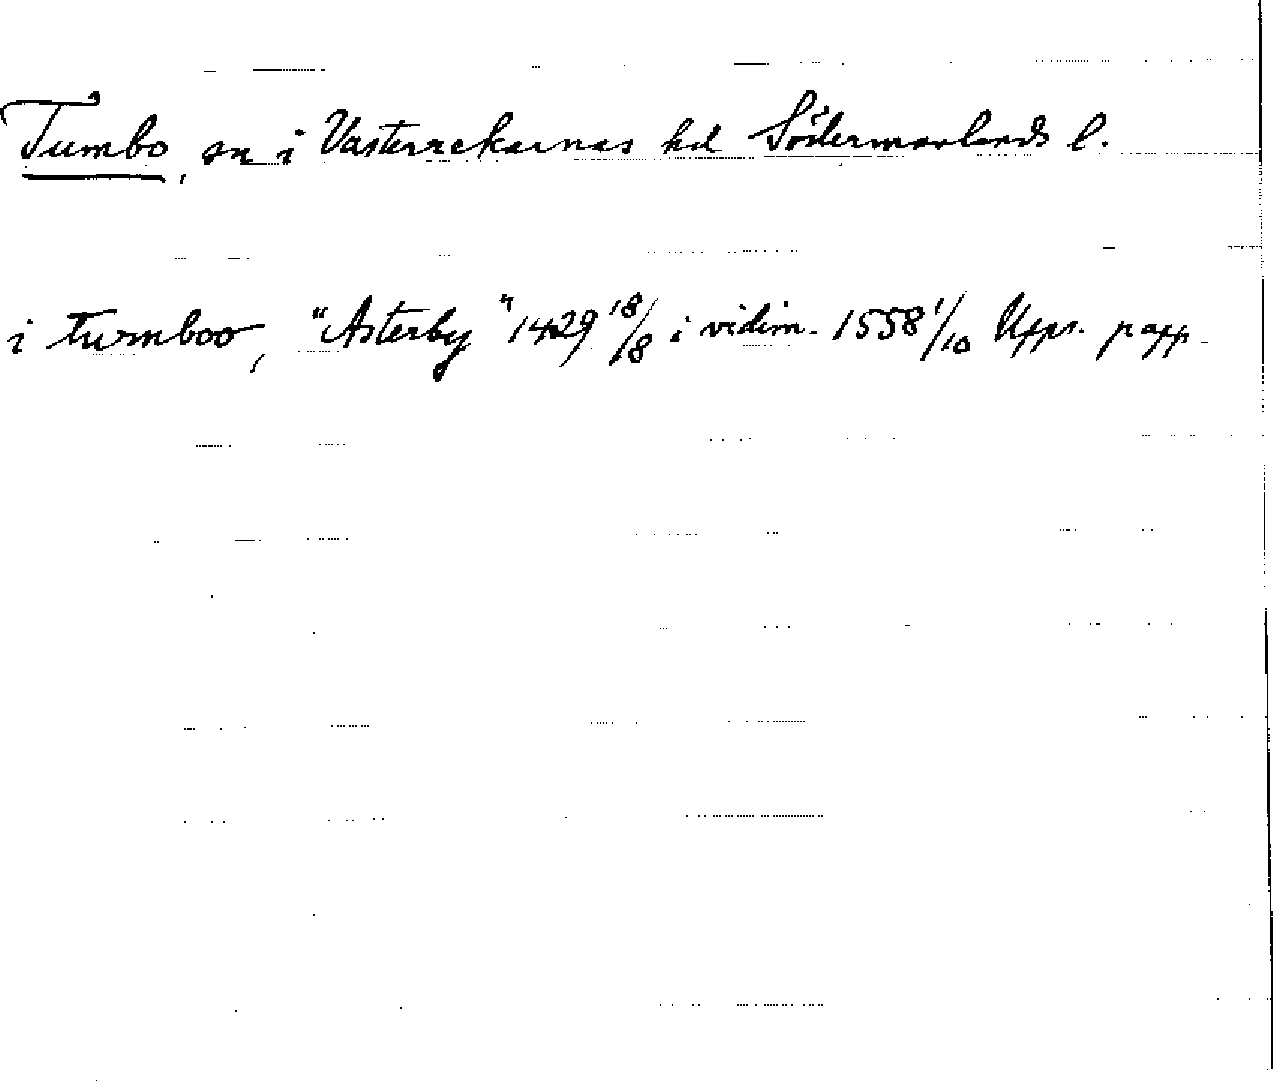 Tumbo, sn i Västerrekarnas hd Södermanlands l.
i tumboo, "Asterby" 1429 18/8 i vidim. 1558 1/10 Upps. papp.